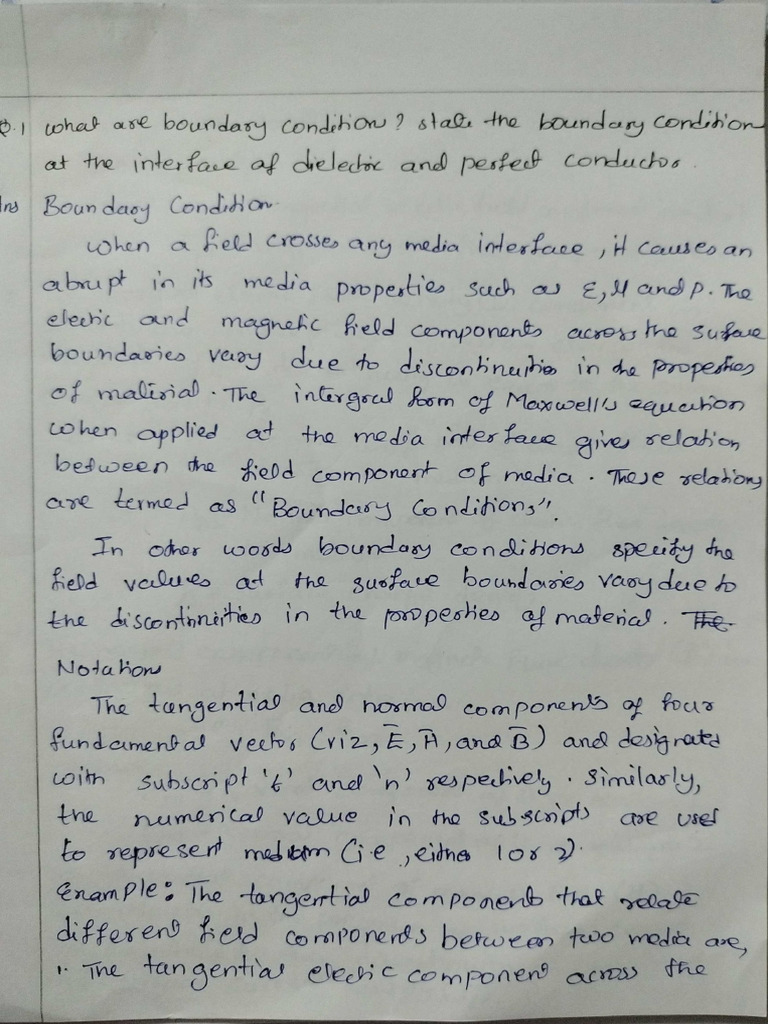 Q.1 what are boundary condition? state the boundary condition
at the interface of dielectric and perfect conductor.
Ans Boundary Condition.
When a field crosses any media interface, it causes an
abrupt in its media properties such as ε, μ and ρ. The
electric and magnetic field components across the surface
boundaries vary due to discontinuities in the properties
of material. The intergral form of Maxwell's equation
when applied at the media interface gives relation
between the field component of media. These relations
are termed as "Boundary Conditions".
In other words boundary conditions specify the
field values at the surface boundaries vary due to
the discontinuities in the properties of material. The
Notation
The tangential and normal components of four
fundamental vector (viz, E̅, H̅, and B̅) and designated
with subscript 't' and 'n' respectively. Similarly,
the numerical value in the subscripts are used
to represent medium (i.e, either 1 or 2).
Example: The tangential components that relate
different field components between two media are,
1. The tangential electric component across the